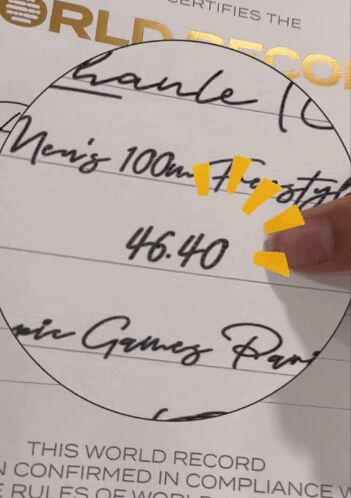 CERTIFIES THE
WORLD RECO
hanle (C
Men's 100m Freestyl
46.40
pic Games Pari
THIS WORLD RECORD
N CONFIRMED IN COMPLIANCE W
E RULES OF WORLD